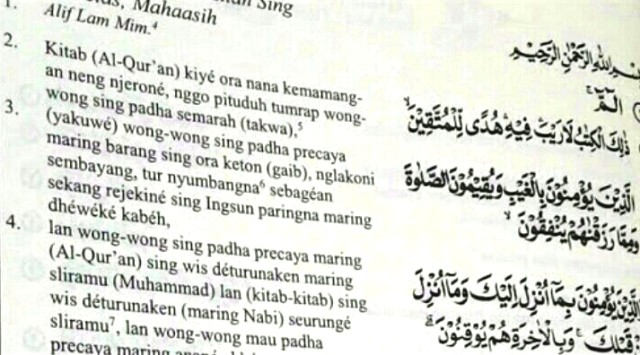 Sing
Mahaasih
1. Alif Lam Mim.⁴
2. Kitab (Al-Qur'an) kiyé ora nana kemamang-
an neng njeroné, nggo pituduh tumrap wong-
wong sing padha semarah (takwa),⁵
3. (yakuwé) wong-wong sing padha precaya
maring barang sing ora keton (gaib), nglakoni
sembayang, tur nyumbangna⁶ sebagéan
sekang rejekiné sing Ingsun paringna maring
dhéwéké kabéh,
4. lan wong-wong sing padha precaya maring
(Al-Qur'an) sing wis déturunaken maring
sliramu (Muhammad) lan (kitab-kitab) sing
wis déturunaken (maring Nabi) seurungé
sliramu⁷, lan wong-wong mau padha
precaya maring
بِسْمِ اللّٰهِ الرَّحْمٰنِ الرَّحِيْمِ
الۤمّۤ ۚ
ذٰلِكَ الْكِتٰبُ لَارَيْبَ فِيْهِ هُدًى لِّلْمُتَّقِيْنَۙ
الَّذِيْنَ يُؤْمِنُوْنَ بِالْغَيْبِ وَيُقِيْمُوْنَ الصَّلٰوةَ
وَمِمَّا رَزَقْنٰهُمْ يُنْفِقُوْنَ ۙ
وَالَّذِيْنَ يُؤْمِنُوْنَ بِمَآ اُنْزِلَ اِلَيْكَ وَمَآ اُنْزِلَ
قَبْلِكَ ۚ وَبِالْاٰخِرَةِ هُمْ يُوْقِنُوْنَ ۗ